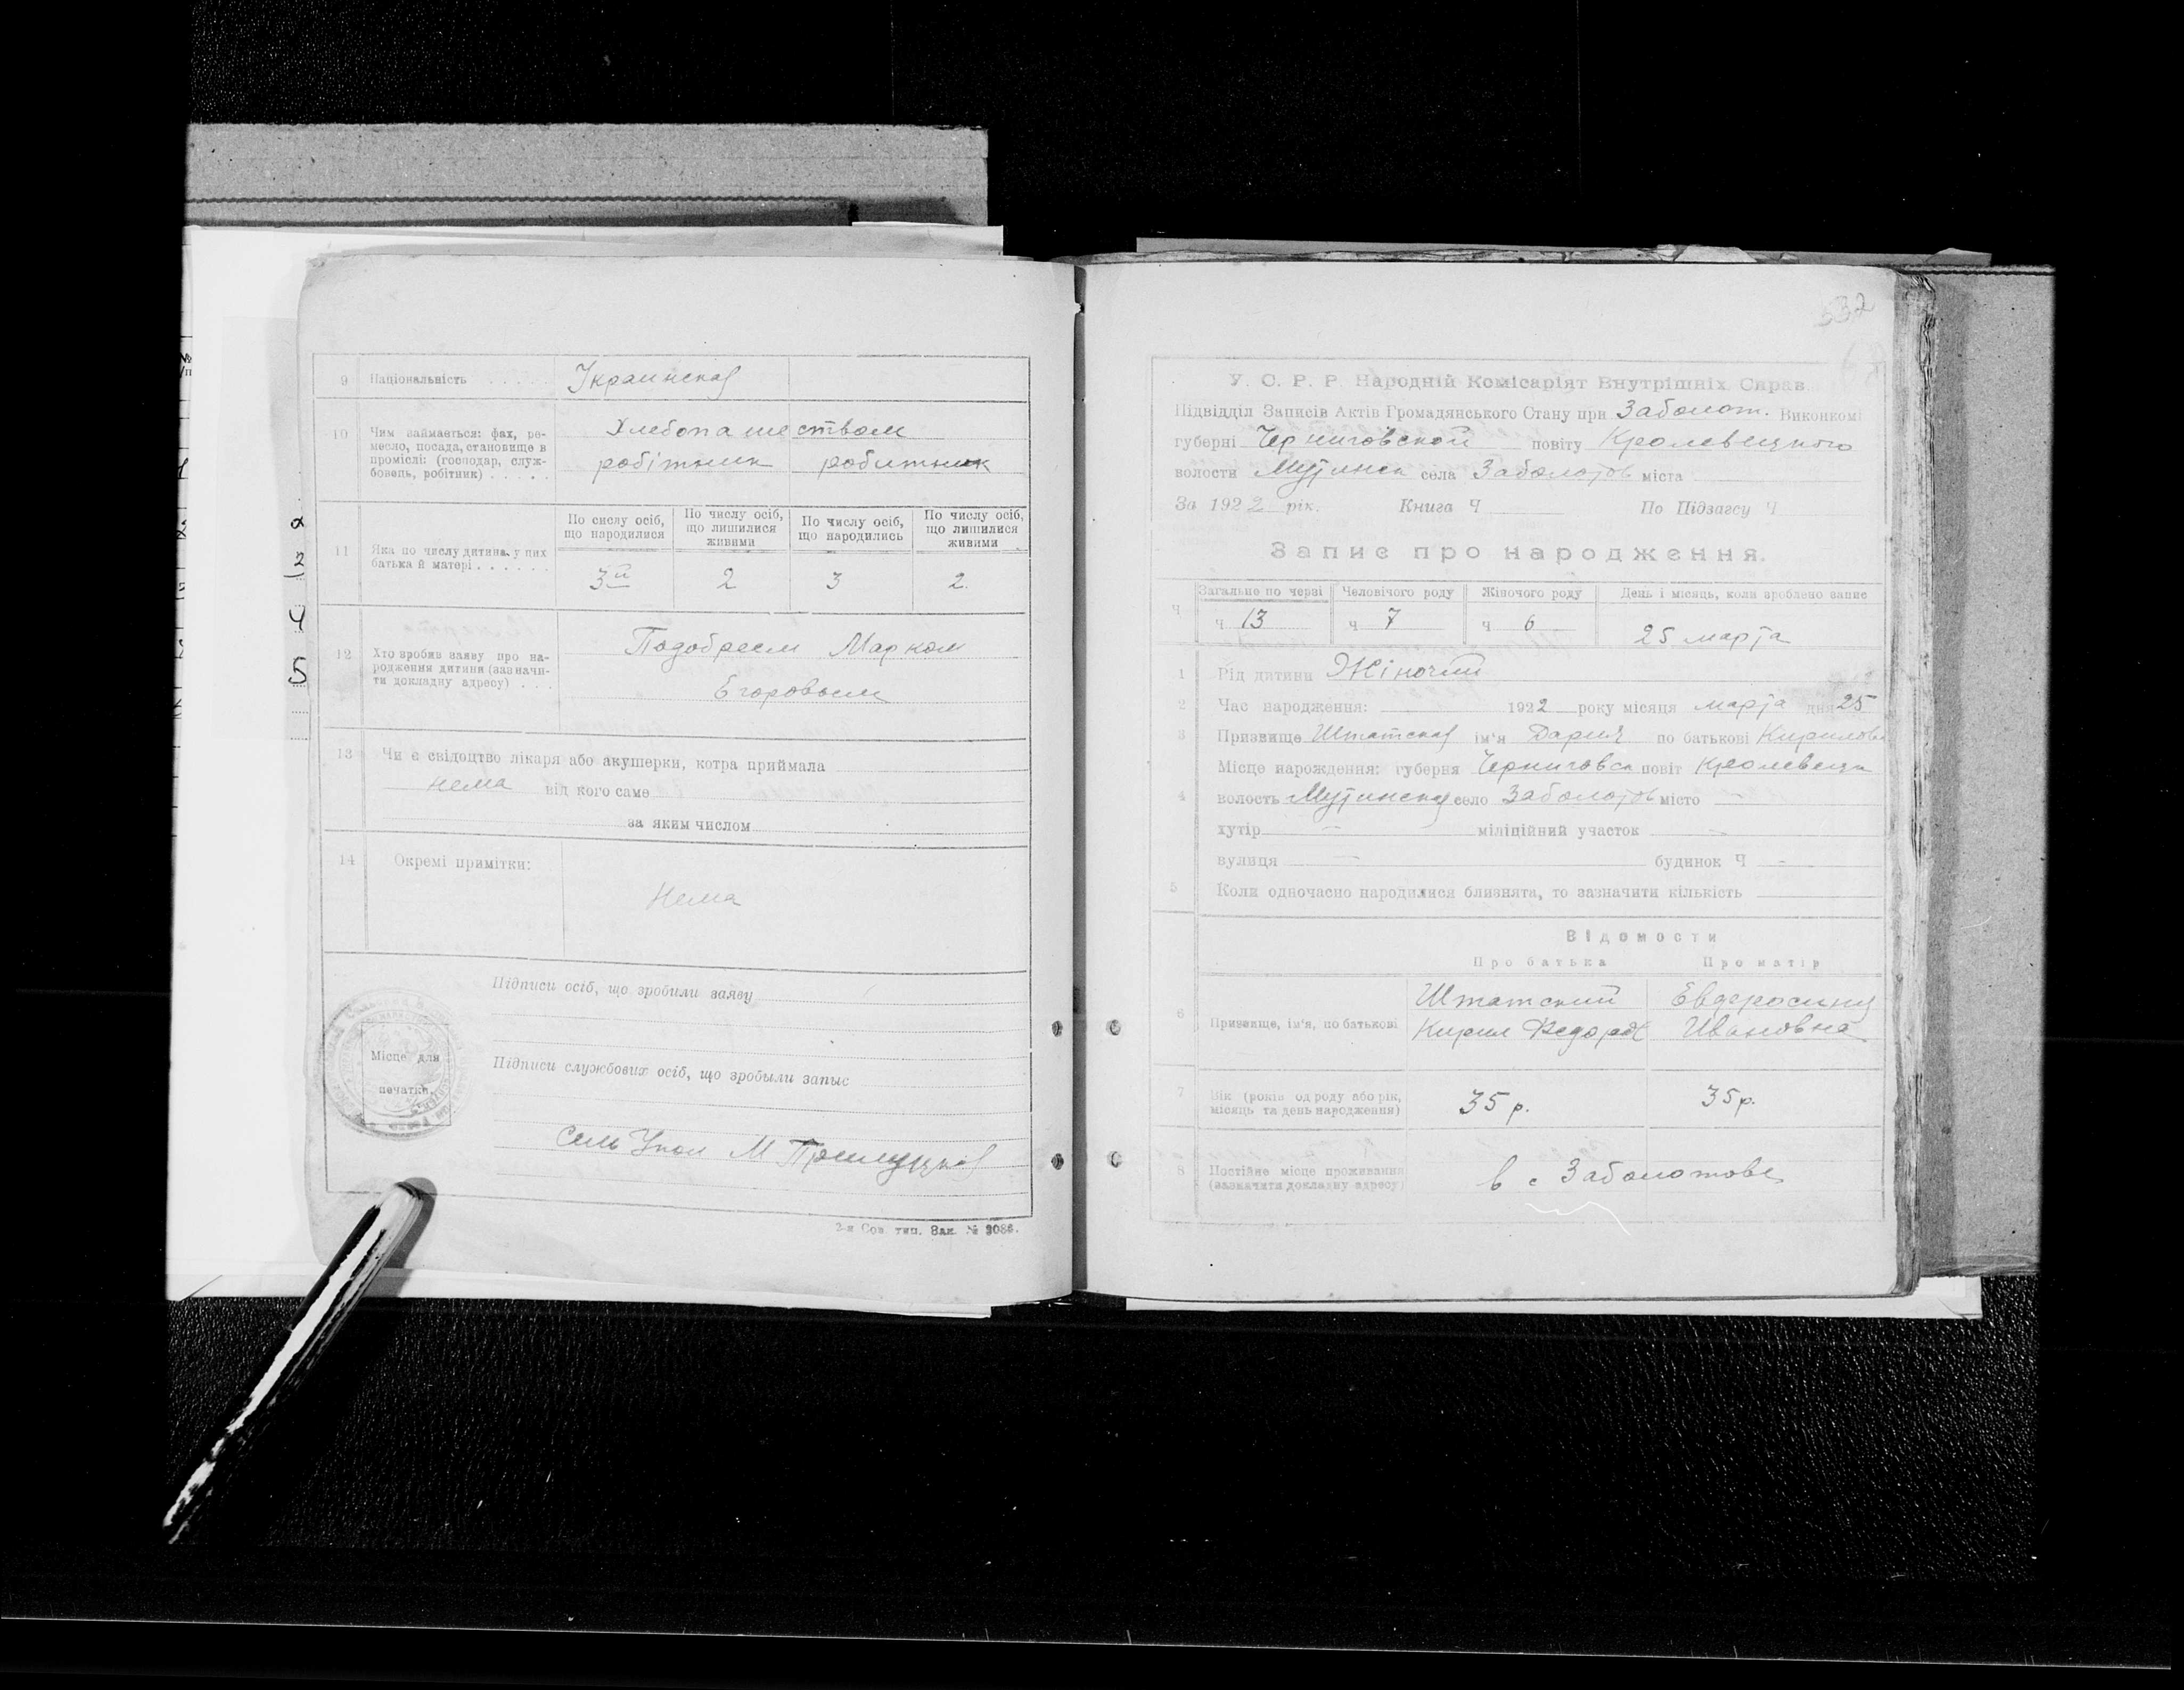 9 Національність Украинская
10 Чим займається: фах, ре-
месло, посада, становище в
промислі: (господар, служ-
бовець, робітник)
Хлебопашеством
робітник робитник
11 Яка по числу дитина у них
батька й матері
По сислу осіб,
що народилися
По числу осіб,
що лишилися
живими
По числу осіб,
що народились
По числу осіб,
що лишилися
живими
3й 2 3 2.
12 Хто зробив заяву про на-
родження дитини (зазначи-
ти докладну адресу)
Марком
Егоровым
13 Чи є свідоцтво лікаря або акушерки, котра приймала
нема від кого саме
за яким числом
14 Окремі примітки:
Нема
Підписи осіб, що зробили заяву
Місце для
печатки
Підписи службових осіб, що зробыли запыс
М
2-я Сов. тип. Зак. № 3086.
2
2
4
5
532
У. С. Р. Р. Народній Комісаріят Внутрішніх Справ
Підвідділ Записів Актів Громадянського Стану при Заболот. Виконкомі
губерні Черниговской повіту Кролевецкого
волости Мутинск села Заболотов міста
За 1922 рік. Книга Ч По Підзагсу Ч
Запис про народження.
Ч Загальне по черзі Человічого роду Жіночого роду День і місяць, коли зроблено запис
ч 13 ч 7 ч 6 25 марта
1 Рід дитини Жіночий
2 Час народження: 1922 року місяця марта дня 25
3 Призвище Штатская ім'я Дария по батькові Кирилова
Місце нарождення: губерня Черниговск повіт Кролевецк
4 волость Мутинская село Заболотов місто –
хутір – міліційний участок –
вулиця – будинок Ч -
5 Коли одночасно народилися близнята, то зазначити кількість
Відомости
Про батька Про матір
6 Призвище, ім'я, по батькові
Штатский
Кирил Федоров
Евдеросиния
Ивановна
7 Вік (років од роду або рік,
місяць та день народження)
35 р. 35 р.
8 Постійне місце проживання
(зазначити докладну адресу)
в с Заболотове